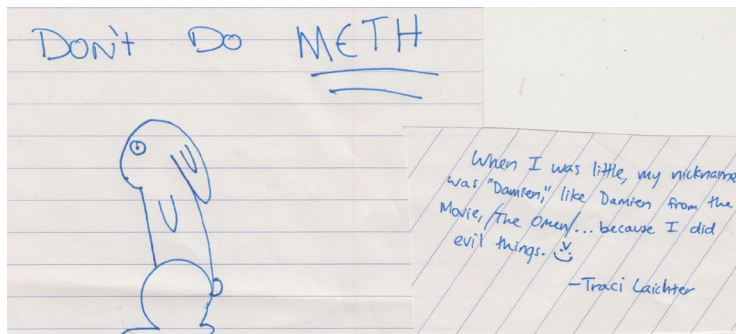 DON'T DO METH
When I was little, my nickname
was "Damien," like Damien from the
Movie, /The Omen/... because I did
evil things.
-Traci Laichter